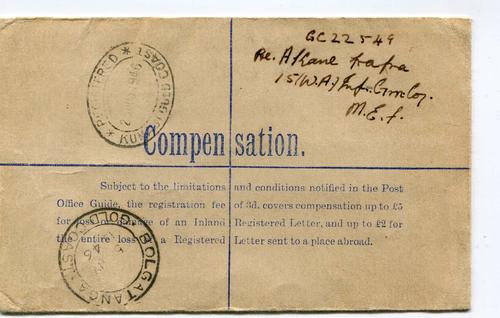 GC22549
M.E.f.
REGISTERED
GOLD COAST
Compensation.
Subject to the limitations and conditions notified in the Post
Office Guide, the registration fee of 3d. covers compensation up to £5
for loss or damage of an Inland Registered Letter, and up to £2 for
the entire loss of a Registered Letter sent to a place abroad.
BOLGATANGA
GOLD COAST